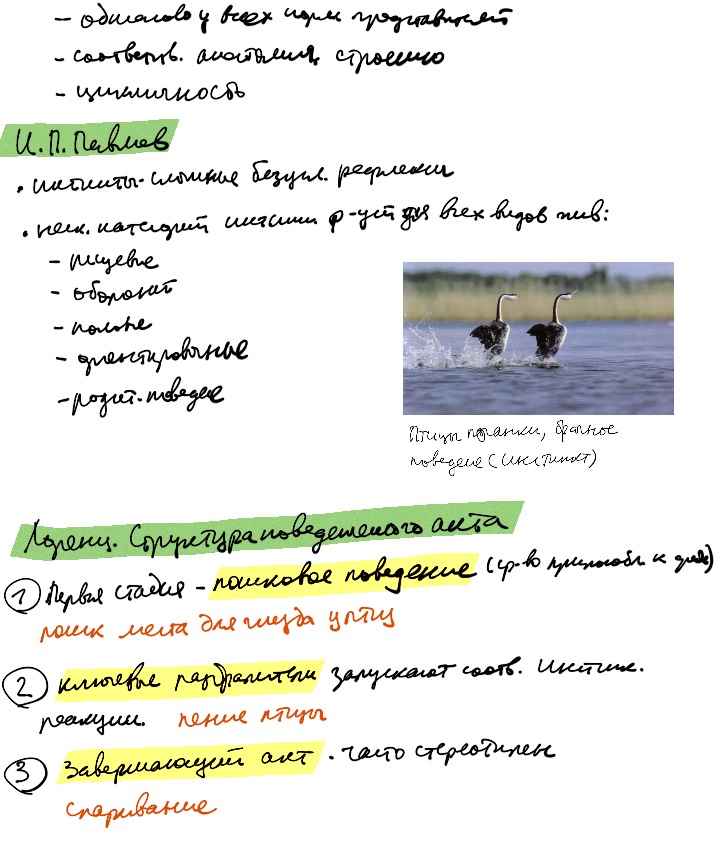 - одинаково у всех норм представителей
- соответв. анатомич. строению
- цикличность
И. П. Павлов
• инстинкты - сложные безусл. рефлексы
• неск. категорий инстинк ф-ует для всех видов жив:
- пищевые
- оборонит
- половые
- ориентировочные
- родит. поведение
Птицы поганки, брачное
поведение (инстинкт)
Лоренц. Структура поведенческого акта
1 Первая стадия - поисковое поведение (ср-во приспособл. к среде)
поиск места для гнезда у птиц
2 Ключевые раздражители запускают соотв. инстинк.
реакции. пение птицы
3 Завершающий акт. часто стереотипен
спаривание